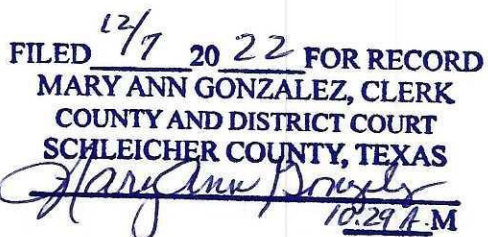 FILED 12/7 20 22 FOR RECORD
MARY ANN GONZALEZ, CLERK
COUNTY AND DISTRICT COURT
SCHLEICHER COUNTY, TEXAS
Mary Ann Gonzalez
10:29 A.M